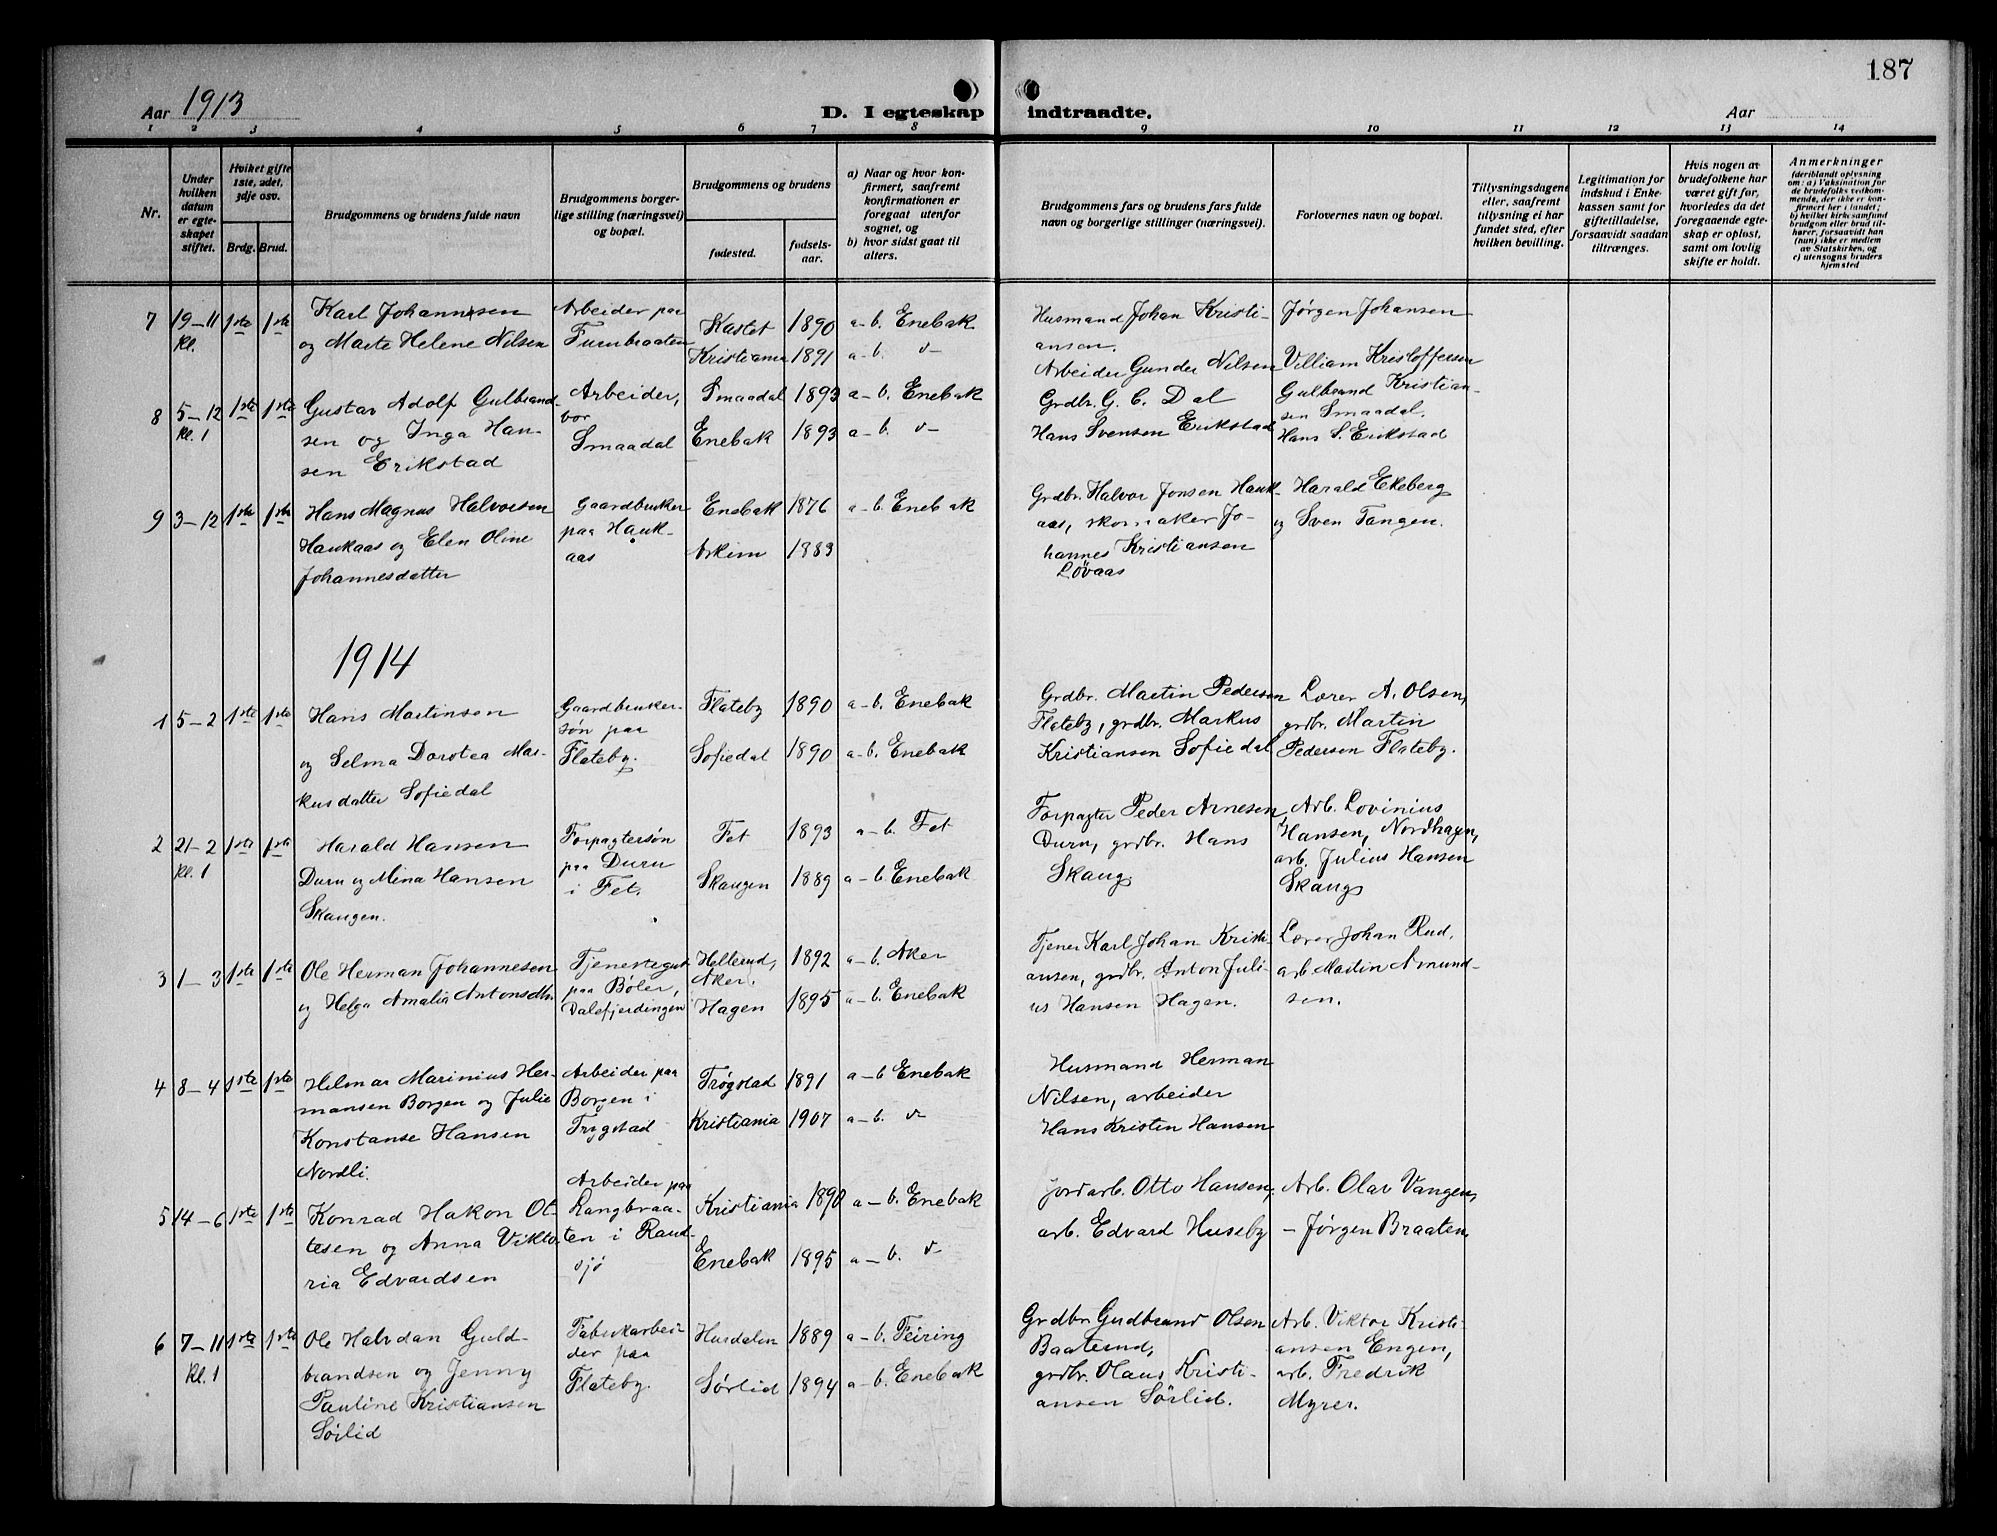 187
Aar 1913
D. I egteskap indtraadte.
Aar
1 2 3 4 5 6 7 8 9 10 11 12 13 14
Nr.
Under
hvilken
datum
er egte-
skapet
stiftet.
Hvilket gifte
1ste, 2det,
3dje osv.
Brdg. Brud.
Brudgommens og brudens fulde navn
Brudgommens borger-
lige stilling (næringsvei)
og bopæl.
Brudgommens og brudens
fødested.
fødsels-
aar.
a) Naar og hvor kon-
firmert, saafremt
konfirmationen er
foregaat utenfor
sognet, og
b) hvor sidst gaat til
alters.
Brudgommens fars og brudens fars fulde
navn og borgerlige stillinger (næringsvei).
Forlovernes navn og bopæl.
Tillysningsdagene
eller, saafremt
tillysning ei har
fundet sted, efter
hvilken bevilling.
Legitimation for
indskud i Enke-
kassen samt for
giftetilladelse,
forsaavidt saadan
tiltrænges.
Hvis nogen av
brudefolkene har
været gift før,
hvorledes da det
foregaaende egte-
skap er opløst,
samt om lovlig
skifte er holdt.
Anmerkninger
(deriblandt oplysning
om: a) Vaksination for
de brudefolks vedkom-
mende, der ikke er kon-
firmert her i landet;
b) hvilket kirkesamfund
brudgom eller brud til-
hører, forsaavidt han
(hun) ikke er medlem
av Statskirken, og
c) utensogns bruders
hjemsted
7 19–11 1ste 1ste
Kl.
Karl Johannesen
og Marte Helene Nilsen
Arbeider paa
Furubraaten
Kastet 1890 a–b. Enebak
Kristiania 1891 a–b. v–
Husmand Johan Kristi-
ansen.
Arbeider Gunder Nilsen
Jörgen Johansen
Villiam Kristoffersen
8 5–12 1ste 1ste
Kl. 1
Gustav Adolf Gulbrand-
sen og Inga Han-
sen Erikstad
Arbeider,
bor
Smaadal
Smaadal 1893 a–b. Enebak
Enebak 1893 a–b. v–
Grdbr. G. C. Dal
Hans Svensen Erikstad
Gulbrand Kristian-
sen Smaadal.
Hans S. Erikstad
9 3–12 1ste 1ste
Hans Magnus Halvorsen
Haukaas og Elen Oline
Johannesdatter
Gaardbruker
paa Hauk-
aas
Enebak 1876 a–b. Enebak
Askim 1883
Grdbr. Halvor Jonsen Hauk-
aas, skomaker Jo-
hannes Kristiansen
Lövaas
Harald Ekeberg
og Sven Tangen.
1914
1 5–2 1ste 1ste
Hans Martinsen
og Selma Dorotea Mar-
kusdatter Sofiedal
Gaardbruker-
søn paa
Flateby.
Flateby 1890 a–b. Enebak
Sofiedal 1890 a–b. Enebak
Grdbr. Martin Pedersen
Flateby, grdbr. Markus
Kristiansen Sofiedal
Lærer A. Olsen,
grdbr. Martin
Pedersen Flateby.
2 21–2 1ste 1ste
Kl. 1
Harald Hansen
Duru og Mina Hansen
Skaugen.
Forpagtersøn
paa Duru
i Fet.
Fet 1893 a–b. Fet
Skaugen 1889 a–b. Enebak
Forpagter Peder Arnesen
Duru, grdbr. Hans
Skaug
Arb. Lovinius
Hansen, Nordhagen,
arb. Julius Hansen
Skaug
3 1–3 1ste 1ste
Ole Herman Johannesen
og Helga Amalia Antonsdtr.
Tjenestegut
paa Böler,
Dalefjerdingen
Hellerud,
Aker. 1892 a–b. Aker
Hagen 1895 a–b. Enebak
Tjener Karl Johan Kristi-
ansen, grdbr. Anton Juli-
us Hansen Hagen.
Lærer Johan Rud,
arb Martin Amund-
sen.
4 8–4 1ste 1ste
Hilmar Marinius Her-
mansen Borgen og Julie
Konstanse Hansen
Nordli.
Arbeider paa
Borgen i
Trygstad
Trøgstad 1891 a–b Enebak
Kristiania 1907 a–b. v
Husmand Herman
Nilsen, arbeider
Hans Kristin Hansen
5 14–6 1ste 1ste
Konrad Hakon Ot-
tesen og Anna Vikto-
ria Edvardsen
Arbeider paa
Langbraa-
ten i Rand-
sjö
Kristiania 1890 a–b. Enebak
Enebak 1895 a–b. v
jordarb. Otto Hansen,
arb. Edvard Huseby
Arb. Olav Vangen,
– Jørgen Braaten,
6 7–11 1ste 1ste
Kl. 1
Ole Halvdan Guld-
brandsen og Jenny
Pauline Kristiansen
Sörlid
Fabrikarbei-
der paa
Flateby.
Hurdalen 1889 a–b. Feiring
Sørlid 1894 a–b. Enebak
Grdbr Gudbrand Olsen
Baaterud,
grdbr. Olaus Kristi-
ansen Sörlid.
Arb. Viktor Kristi-
ansen Engen,
arb. Fredrik
Myrer.